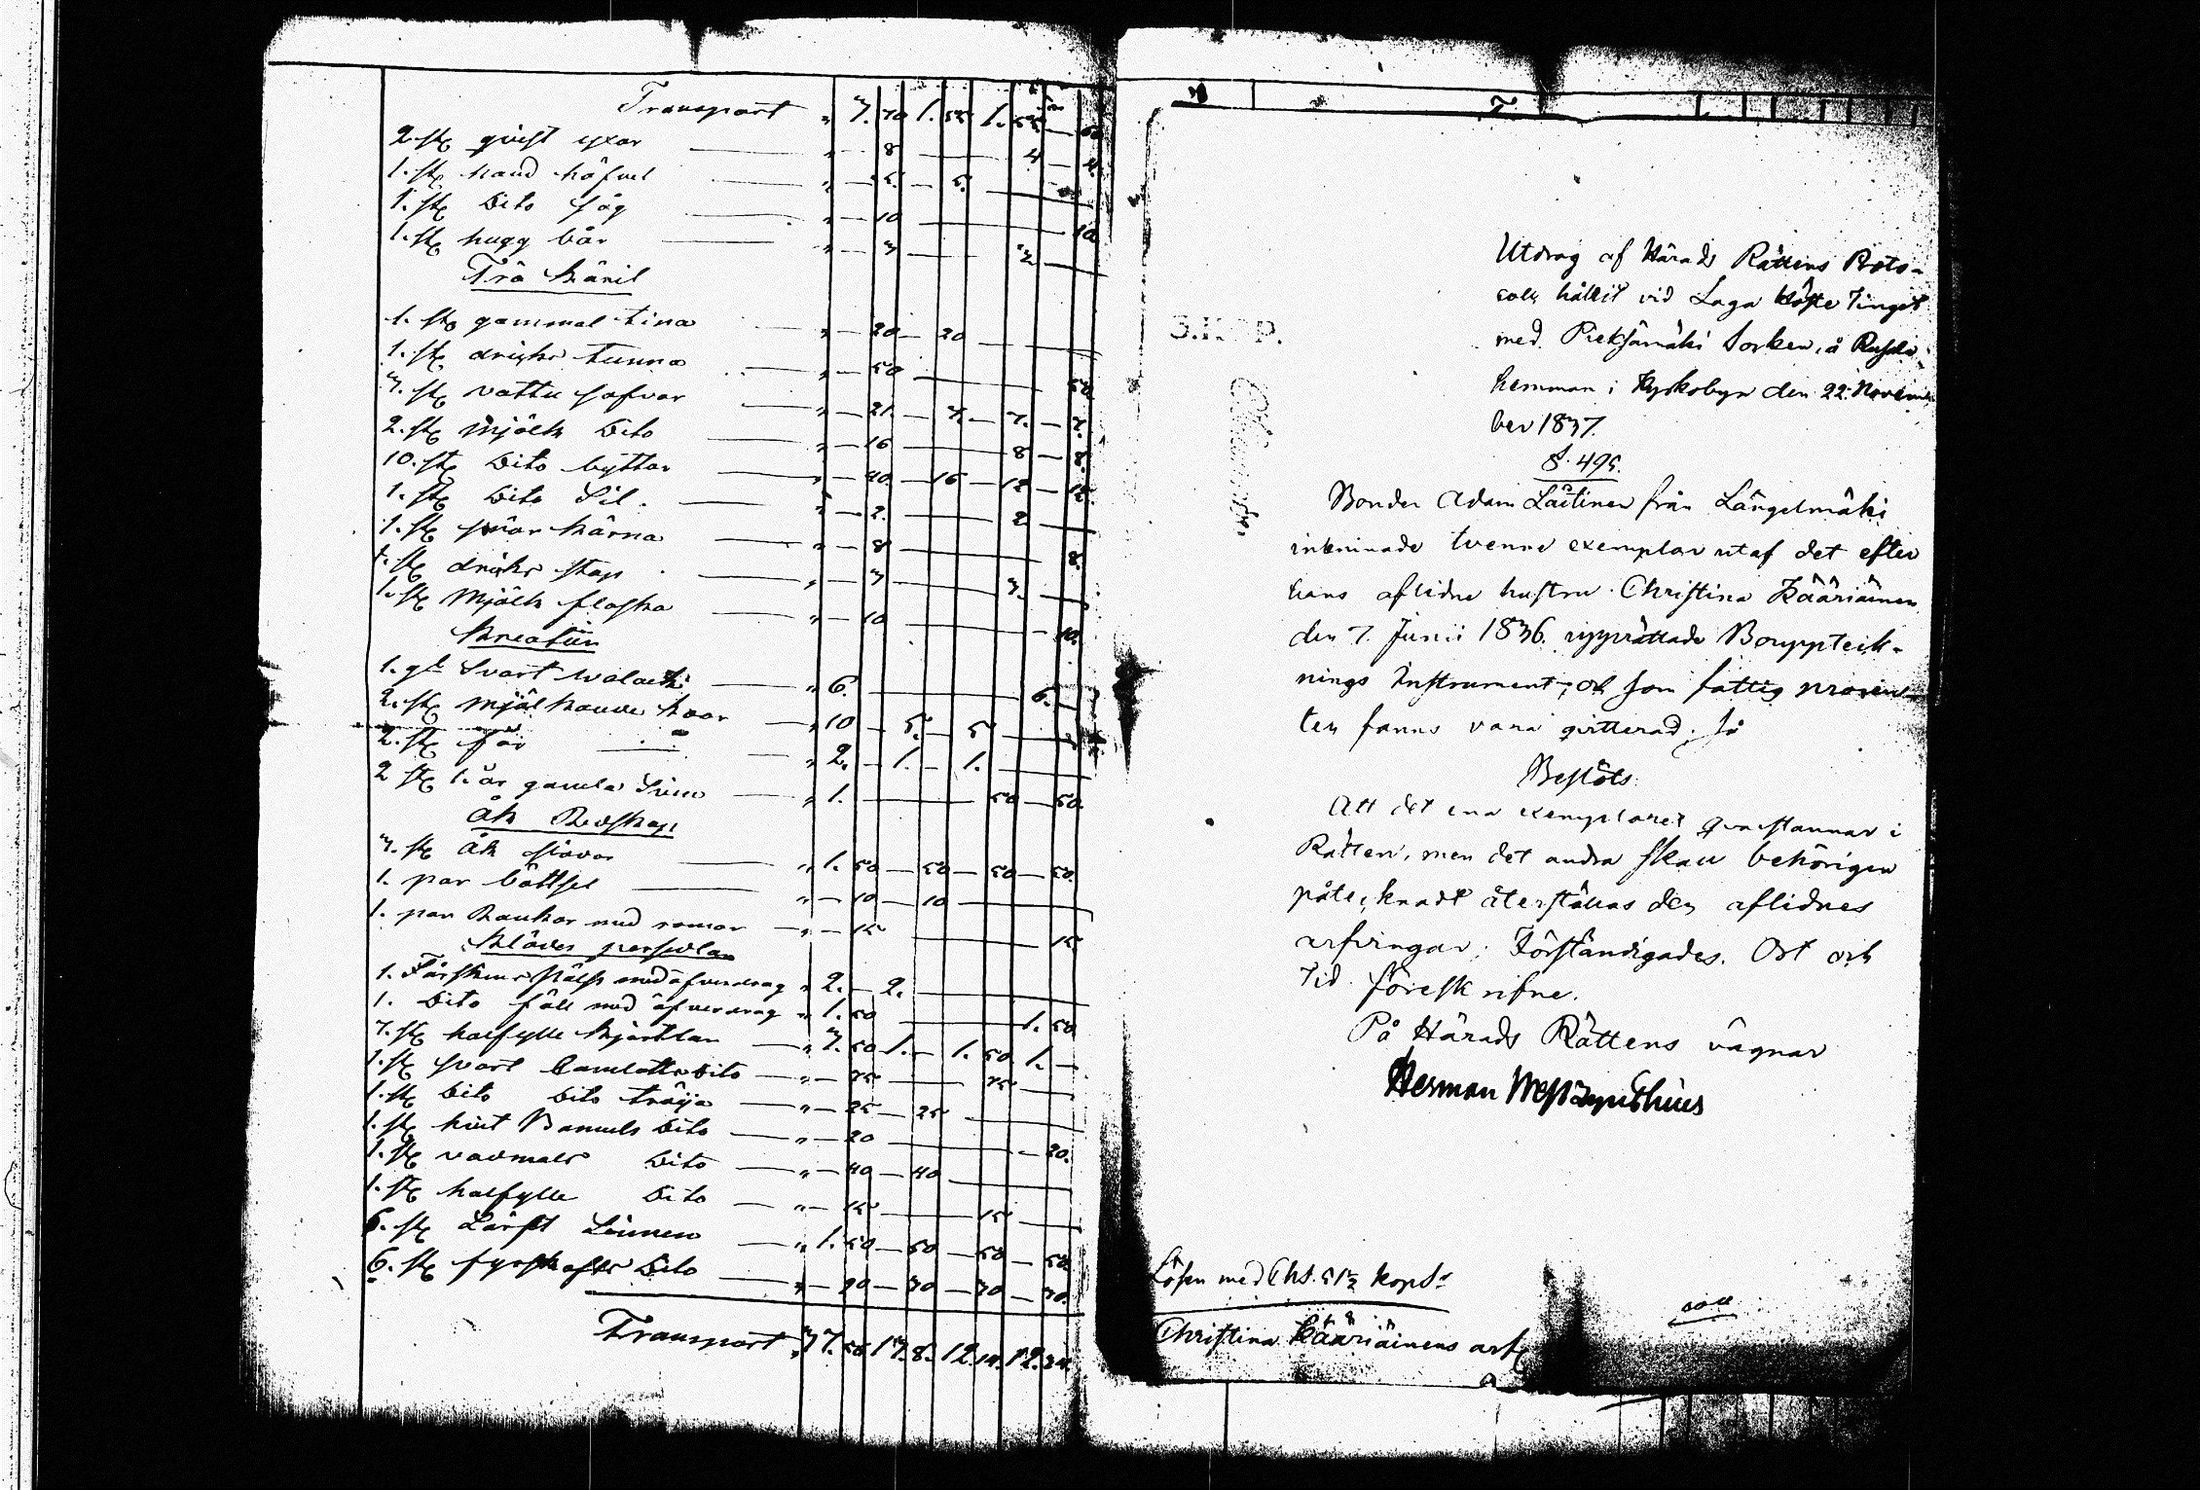 Transport " 7. 70 1. 55 1. 55 — 60
2. st qvist yxor — " — 8 — 4 — 4.
1. st hand höfvel — " — 5. — 5. —
1. st Dito såg — " — 10 — 10
1. st hugg bår — " — 3 — 3 —
Trä Käril
1. st gammal tina — " — 20 — 20 —
1. st dricks tunna — " — 50 — 50
3. st vattu säfvar — " — 21. — 7. — 7. — 7.
2. st Mjölk Dito — " — 16 — 8 — 8.
10. st Dito byttor — " — 40. — 16 — 12 — 12.
1. st Dito Sil. — " — 2. — 2 —
1. st smör kärna — " — 8 — 8.
1. st dricks stop — " — 3 — 3. —
1. st Mjölk flaska — " — 10 — 10.
Kreatur
1. st Svart walack — " 6. — 6. —
2. st mjölkande koor — " 10 — 5. — 5 —
2. st får — " 2. — 1. — 1. —
2 st 1. år gamla Svin — " 1. — 50 — 50.
Åk Redskap
3. st åk slädar — " 1. 50 — 50 — 50 — 50.
1. par bättsel — " — 10 — 10 —
1. par Rankor med remar — " — 15 — 15
Kläder persedlar
1. Fårskins päls med öfverdrag " 2. — 2. —
1. Dito fäll med öfverdrag " 1. 50 — 1. 50
3. st halfylle kjortlar — " 3. 50 1. — 1. 50 1. —
1. st svart Camlotts Dito — " — 75 — 75 —
1. st Dito Dito tröja — " — 25 — 25 —
1. st hvit Bomuls Dito — " — 20 — 20.
1. st vadmals Dito — " — 40 — 40 —
1. st halfylle Dito — " — 15 — 15 —
6. st Lärft Linnen — " 1. 50 — 50 — 50 — 50.
6. st fyrskafts Dito — " — 90 — 30 — 30 — 30.
Transport
Utdrag af Härads Rättens Proto-
coll hållit vid Laga Höste Tinget
med Pieksämäki Sorken, å
hemman i Kyrkobyn den 22. Novem-
ber 1837.
§. 495.
Bonden Adam Laitinen från Längelmäki
inlemnade tvenne exemplar utaf det efter
hans aflidne hustru Christina Kääriäinen
den 7. Junii 1836. upprättade Boupptek-
nings Instrument, och som fattig procen-
ten fanns vara qvitterad; så
Beslöts:
Att det ena exemplaret qvarstannar i
Rätten, men det andra skall behörigen
påtecknadt återställas den aflidnes
arfvingar; Förständigades. Ort och
Tid föreskrifne.
På Härads Rättens vägnar
Herman Wesszynthius
Lösen med 51½ kop Sr
Christina Kääriäinens arf